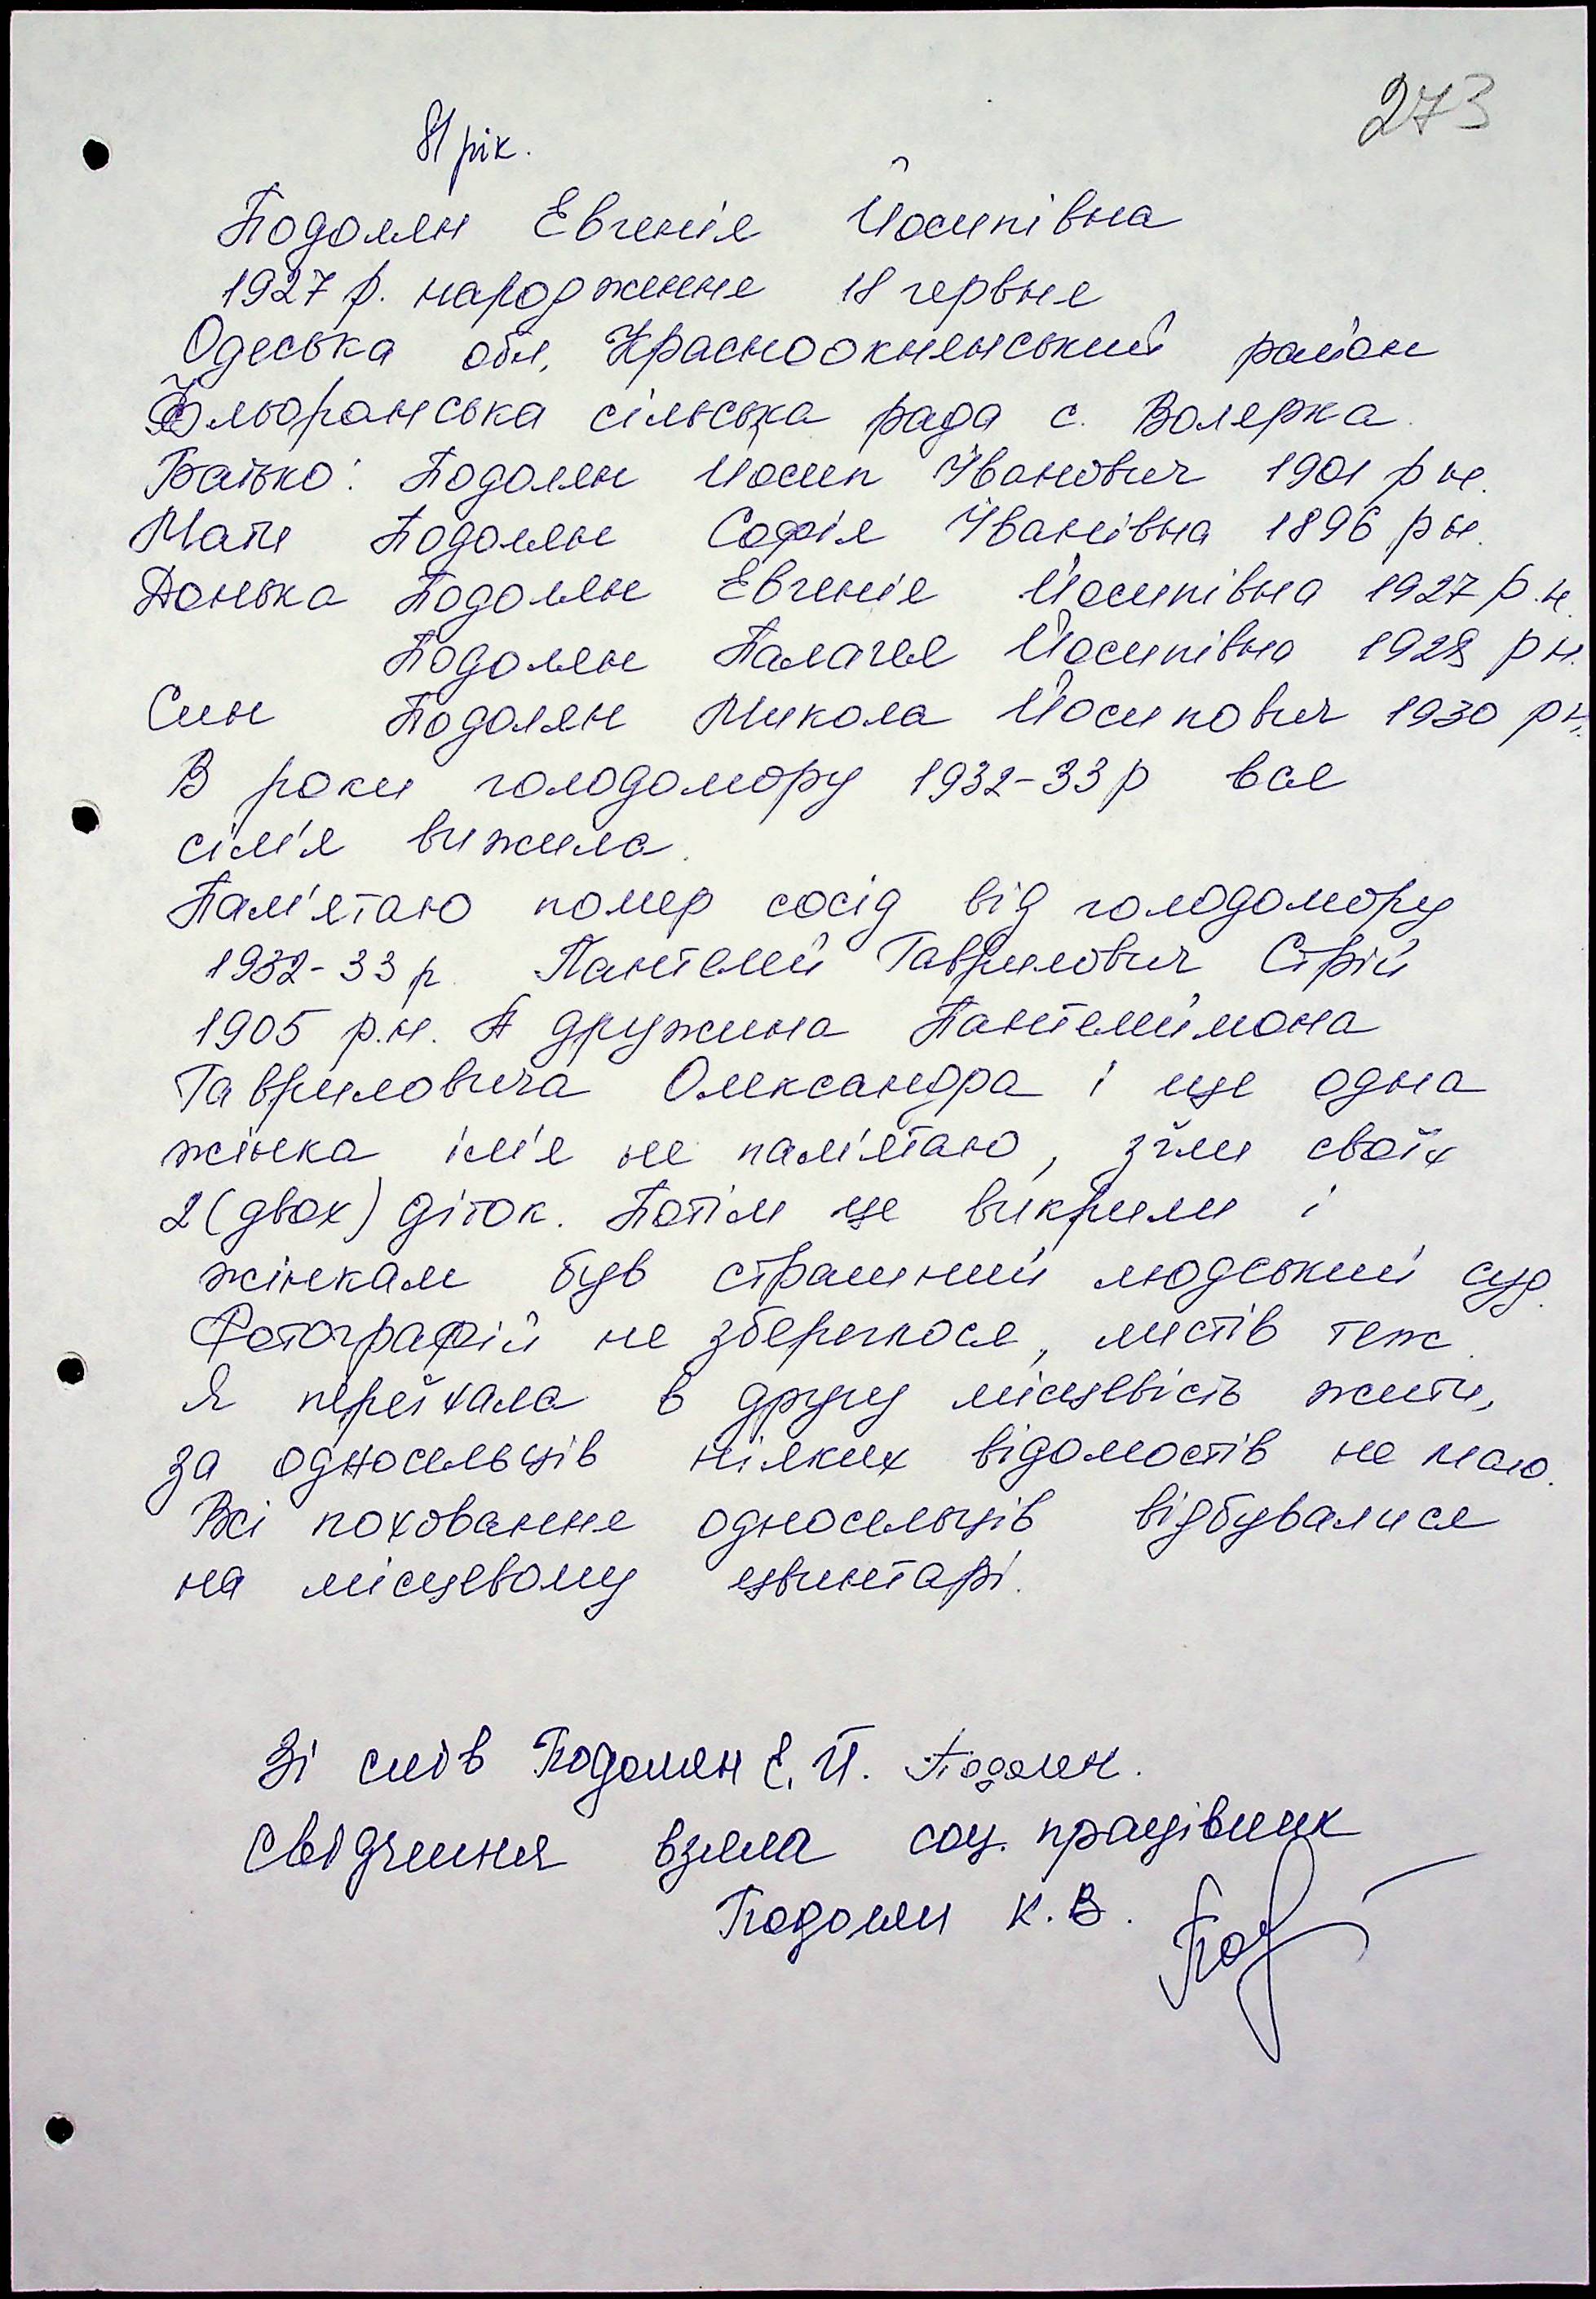 273
81 рік.
Подолян Евгенія Йосипівна
1927 р. народження 18 червня
Одеська обл, Красноокнянський район
Фльоранська сільська рада с. Волярка.
Батько: Подолян Йосип Іванович 1901 р н.
Мати Подолян Софія Іванівна 1896 р н.
Донька Подолян Евгенія Йосипівна 1927 р.н.
Подолян Палагея Йосипівна 1928 р н.
Син Подолян Микола Йосипович 1930 р н.
В роки голодомору 1932-33 р вся
сім'я вижила.
Пам'ятаю помер сосід від голодомору
1932-33 р. Пантелей Гаврилович Стрій
1905 р.н. А дружина Пантелеймона
Гавриловича Олександра і ще одна
жінка ім'я не пам'ятаю, з'їли своїх
2 (двох) діток. Потім це викрили і
жінкам був страшний людський суд.
Фотографій не збереглося, листів теж.
Я переїхала в другу місцевість жити,
за односельців ніяких відомостів не маю.
Всі поховання односельців відбувалися
на місцевому цвинтарі.
Зі слів Подолян Є. Й. Подолян.
Свідчення взяла соц. працівник
Подолян К. В.